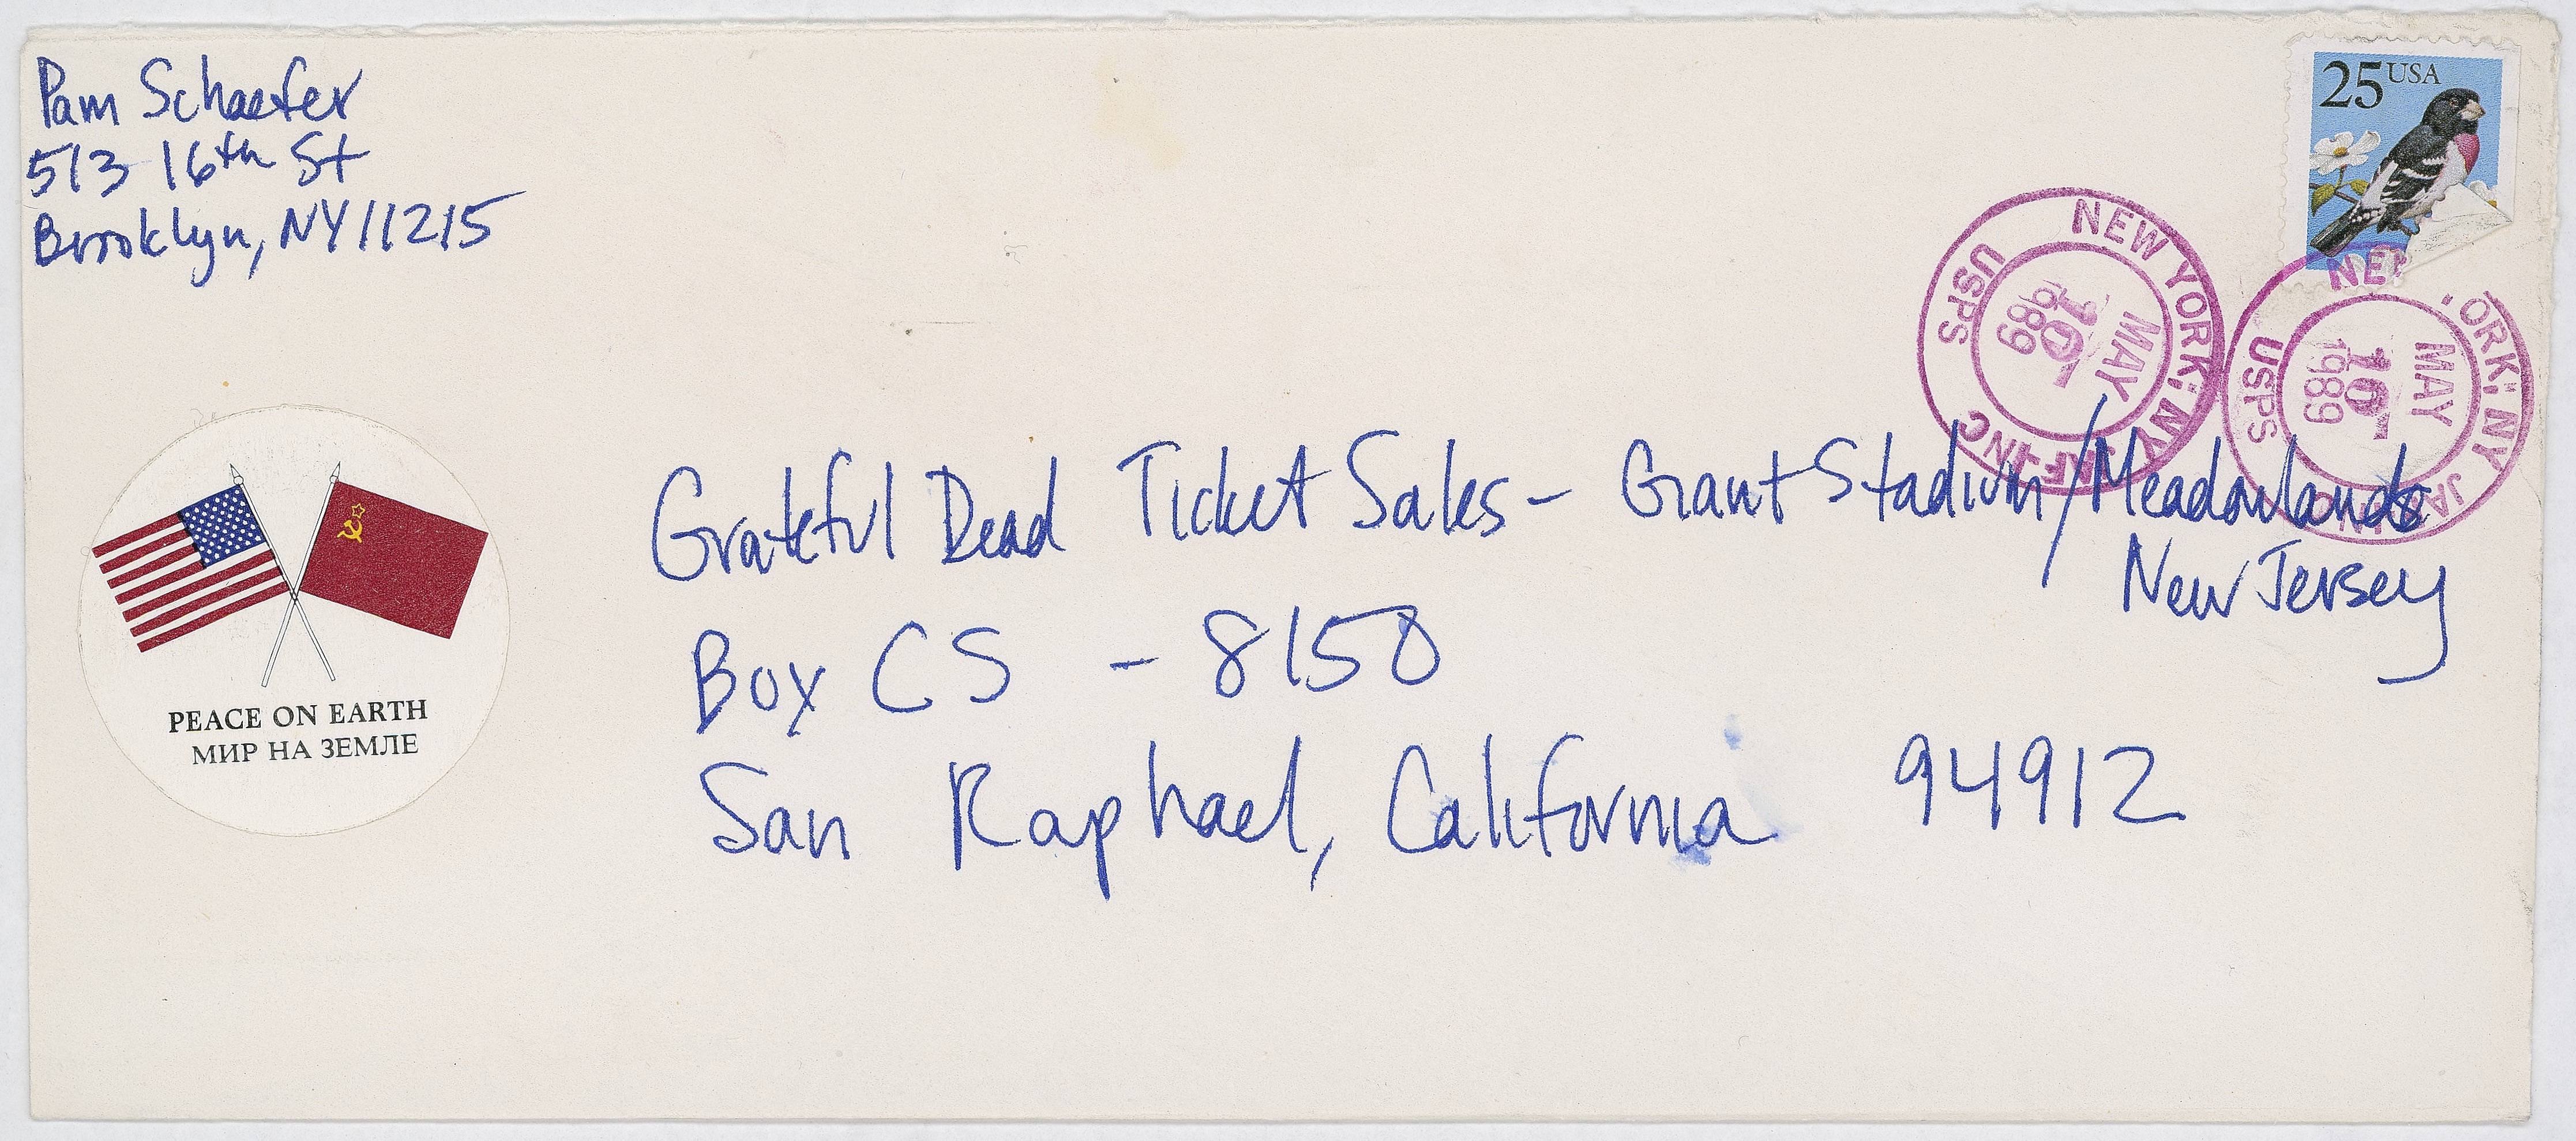 Pam Schaefer
513 16th St
Brooklyn, NY 11215
25 USA
NEW YORK, NY JAF-INC
USPS
MAY
10
1989
NE ORK, NY JA
USPS
MAY
10
1989
Grateful Dead Ticket Sales - Giant Stadium/Meadowlands
New Jersey
Box CS - 8150
San Raphael, California 94912
PEACE ON EARTH
МИР НА ЗЕМЛЕ